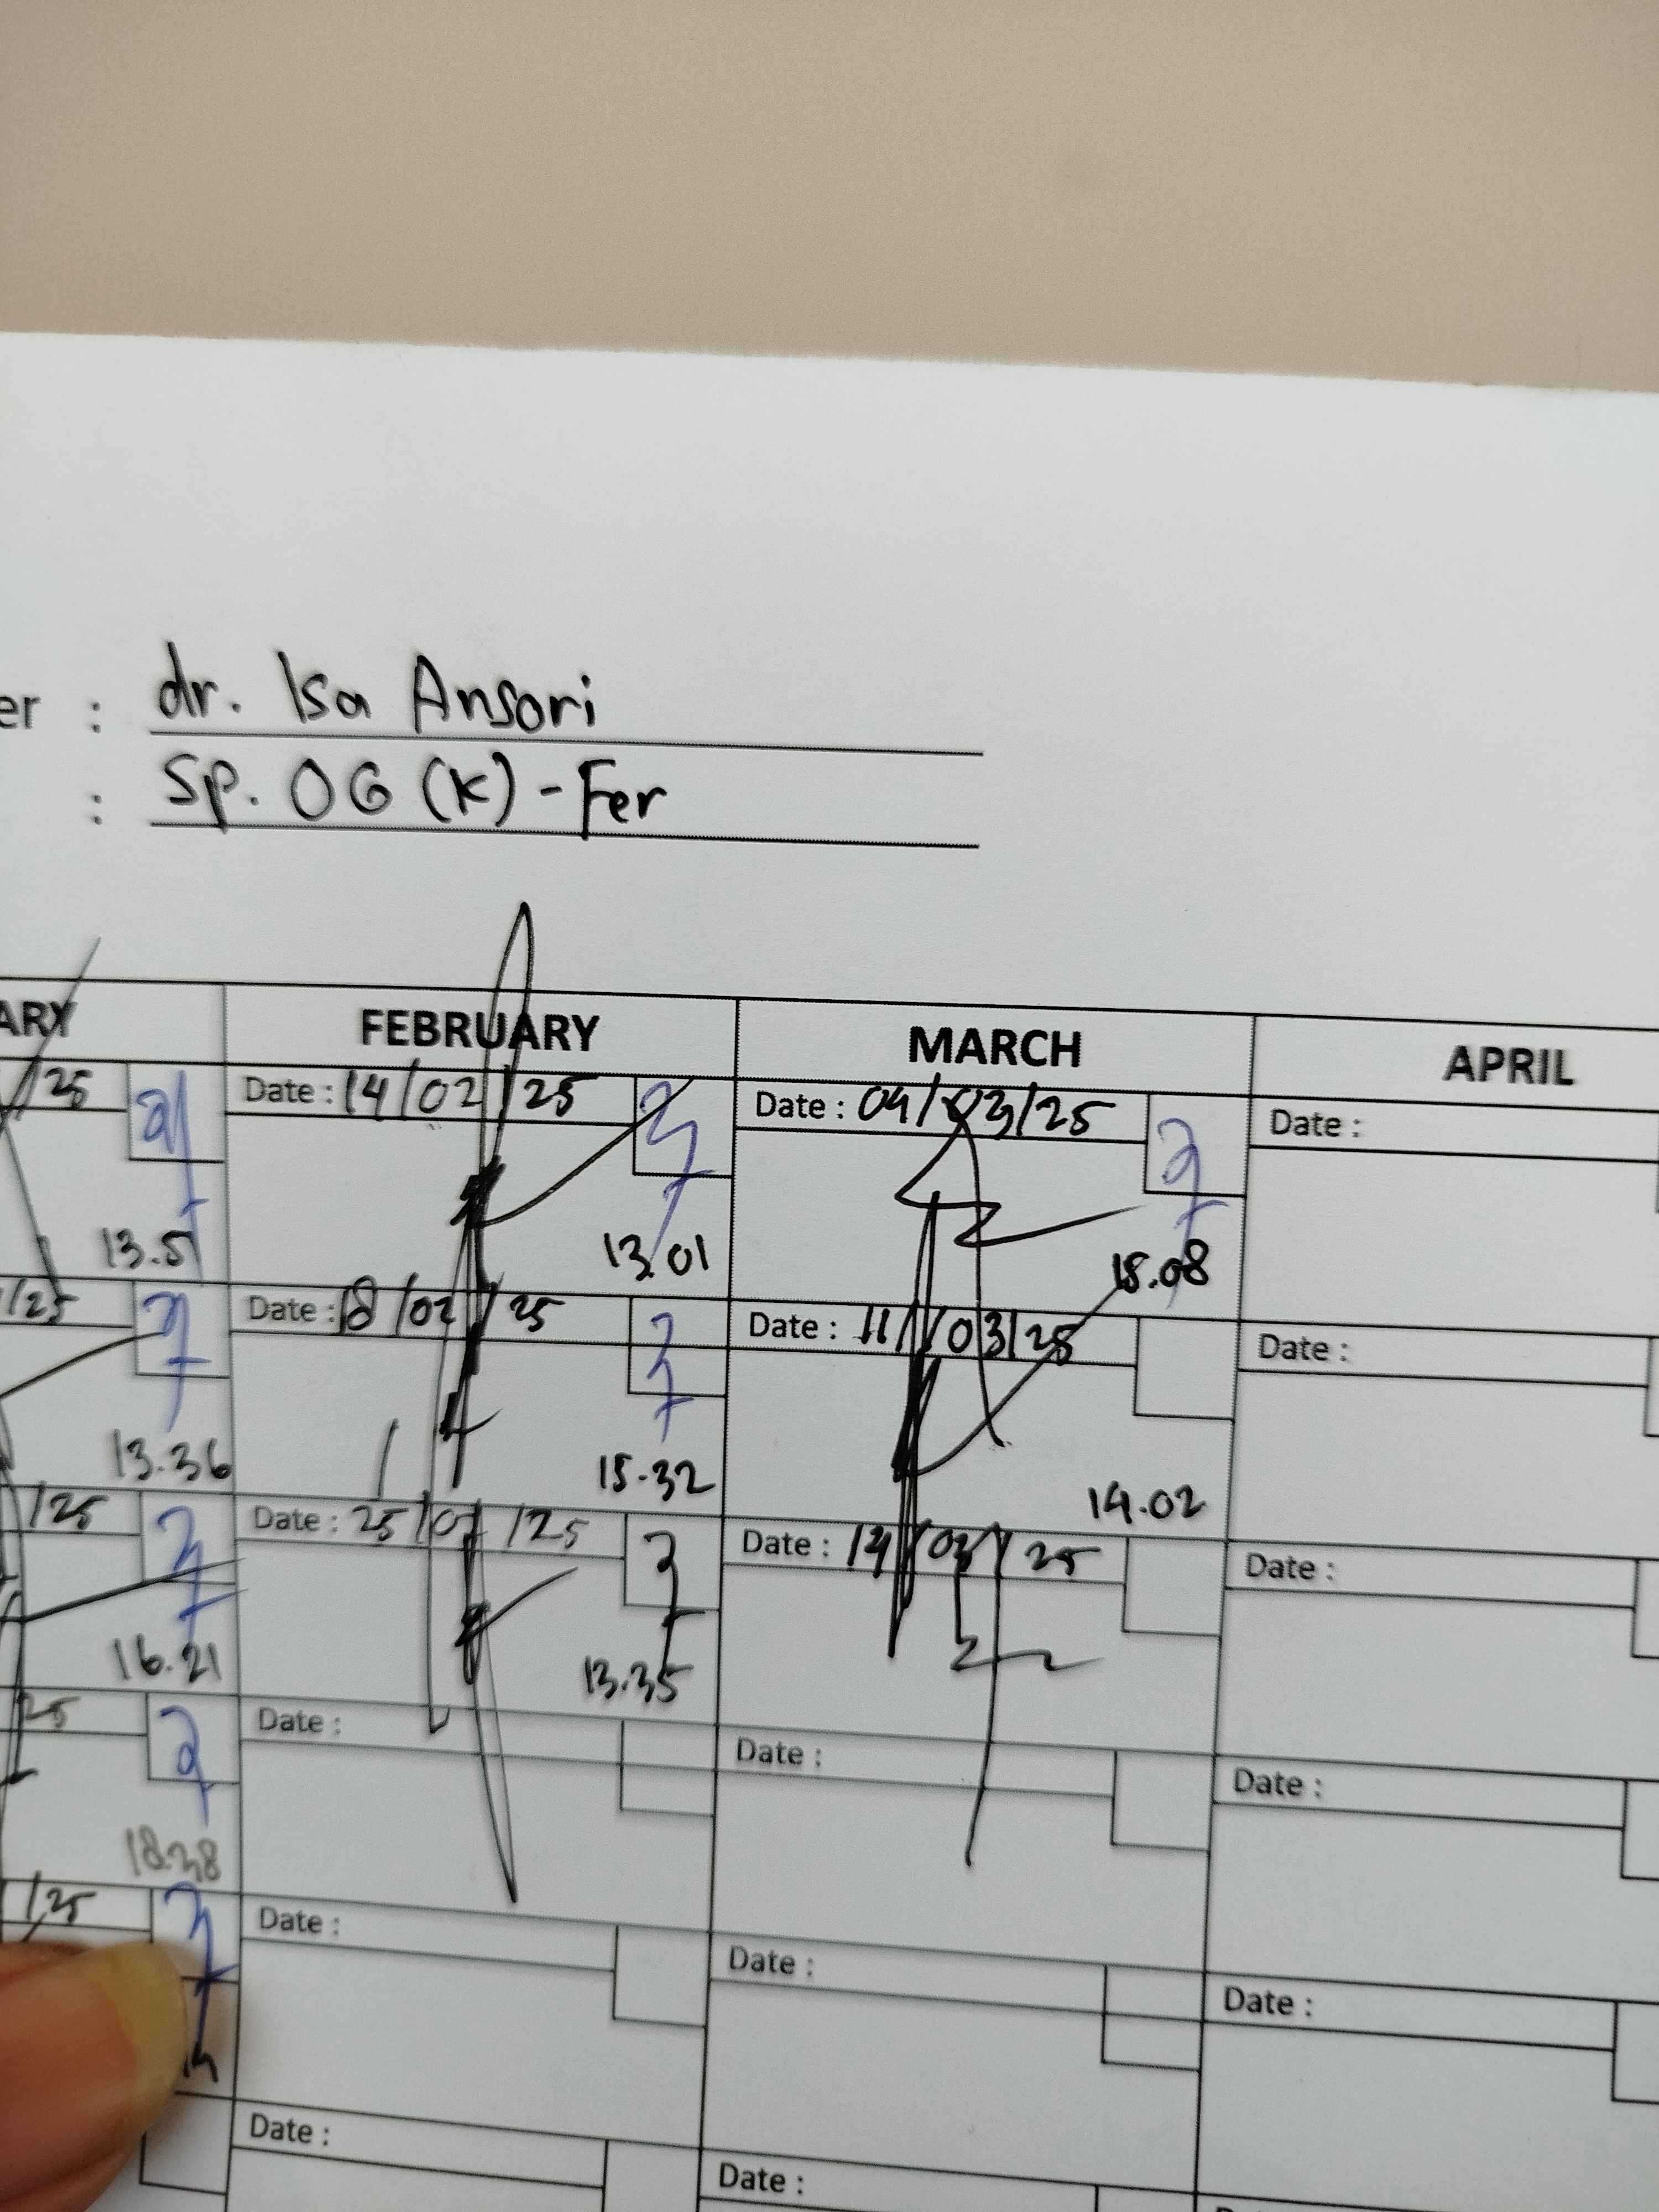 er : dr. Isa Ansori
: Sp. OG (K) - Fer
ARY FEBRUARY MARCH APRIL
/25 Date : 14/02/25 Date : 04/03/25 Date :
13.51 13.01 15.08
/25 Date : 18/02/25 Date : 11/03/25 Date :
13.36 15.32 14.02
/25 Date : 25/02/25 Date : 14/03/25 Date :
16.21 13.35
25 Date : Date : Date :
18.38
/25 Date : Date : Date :
Date : Date :